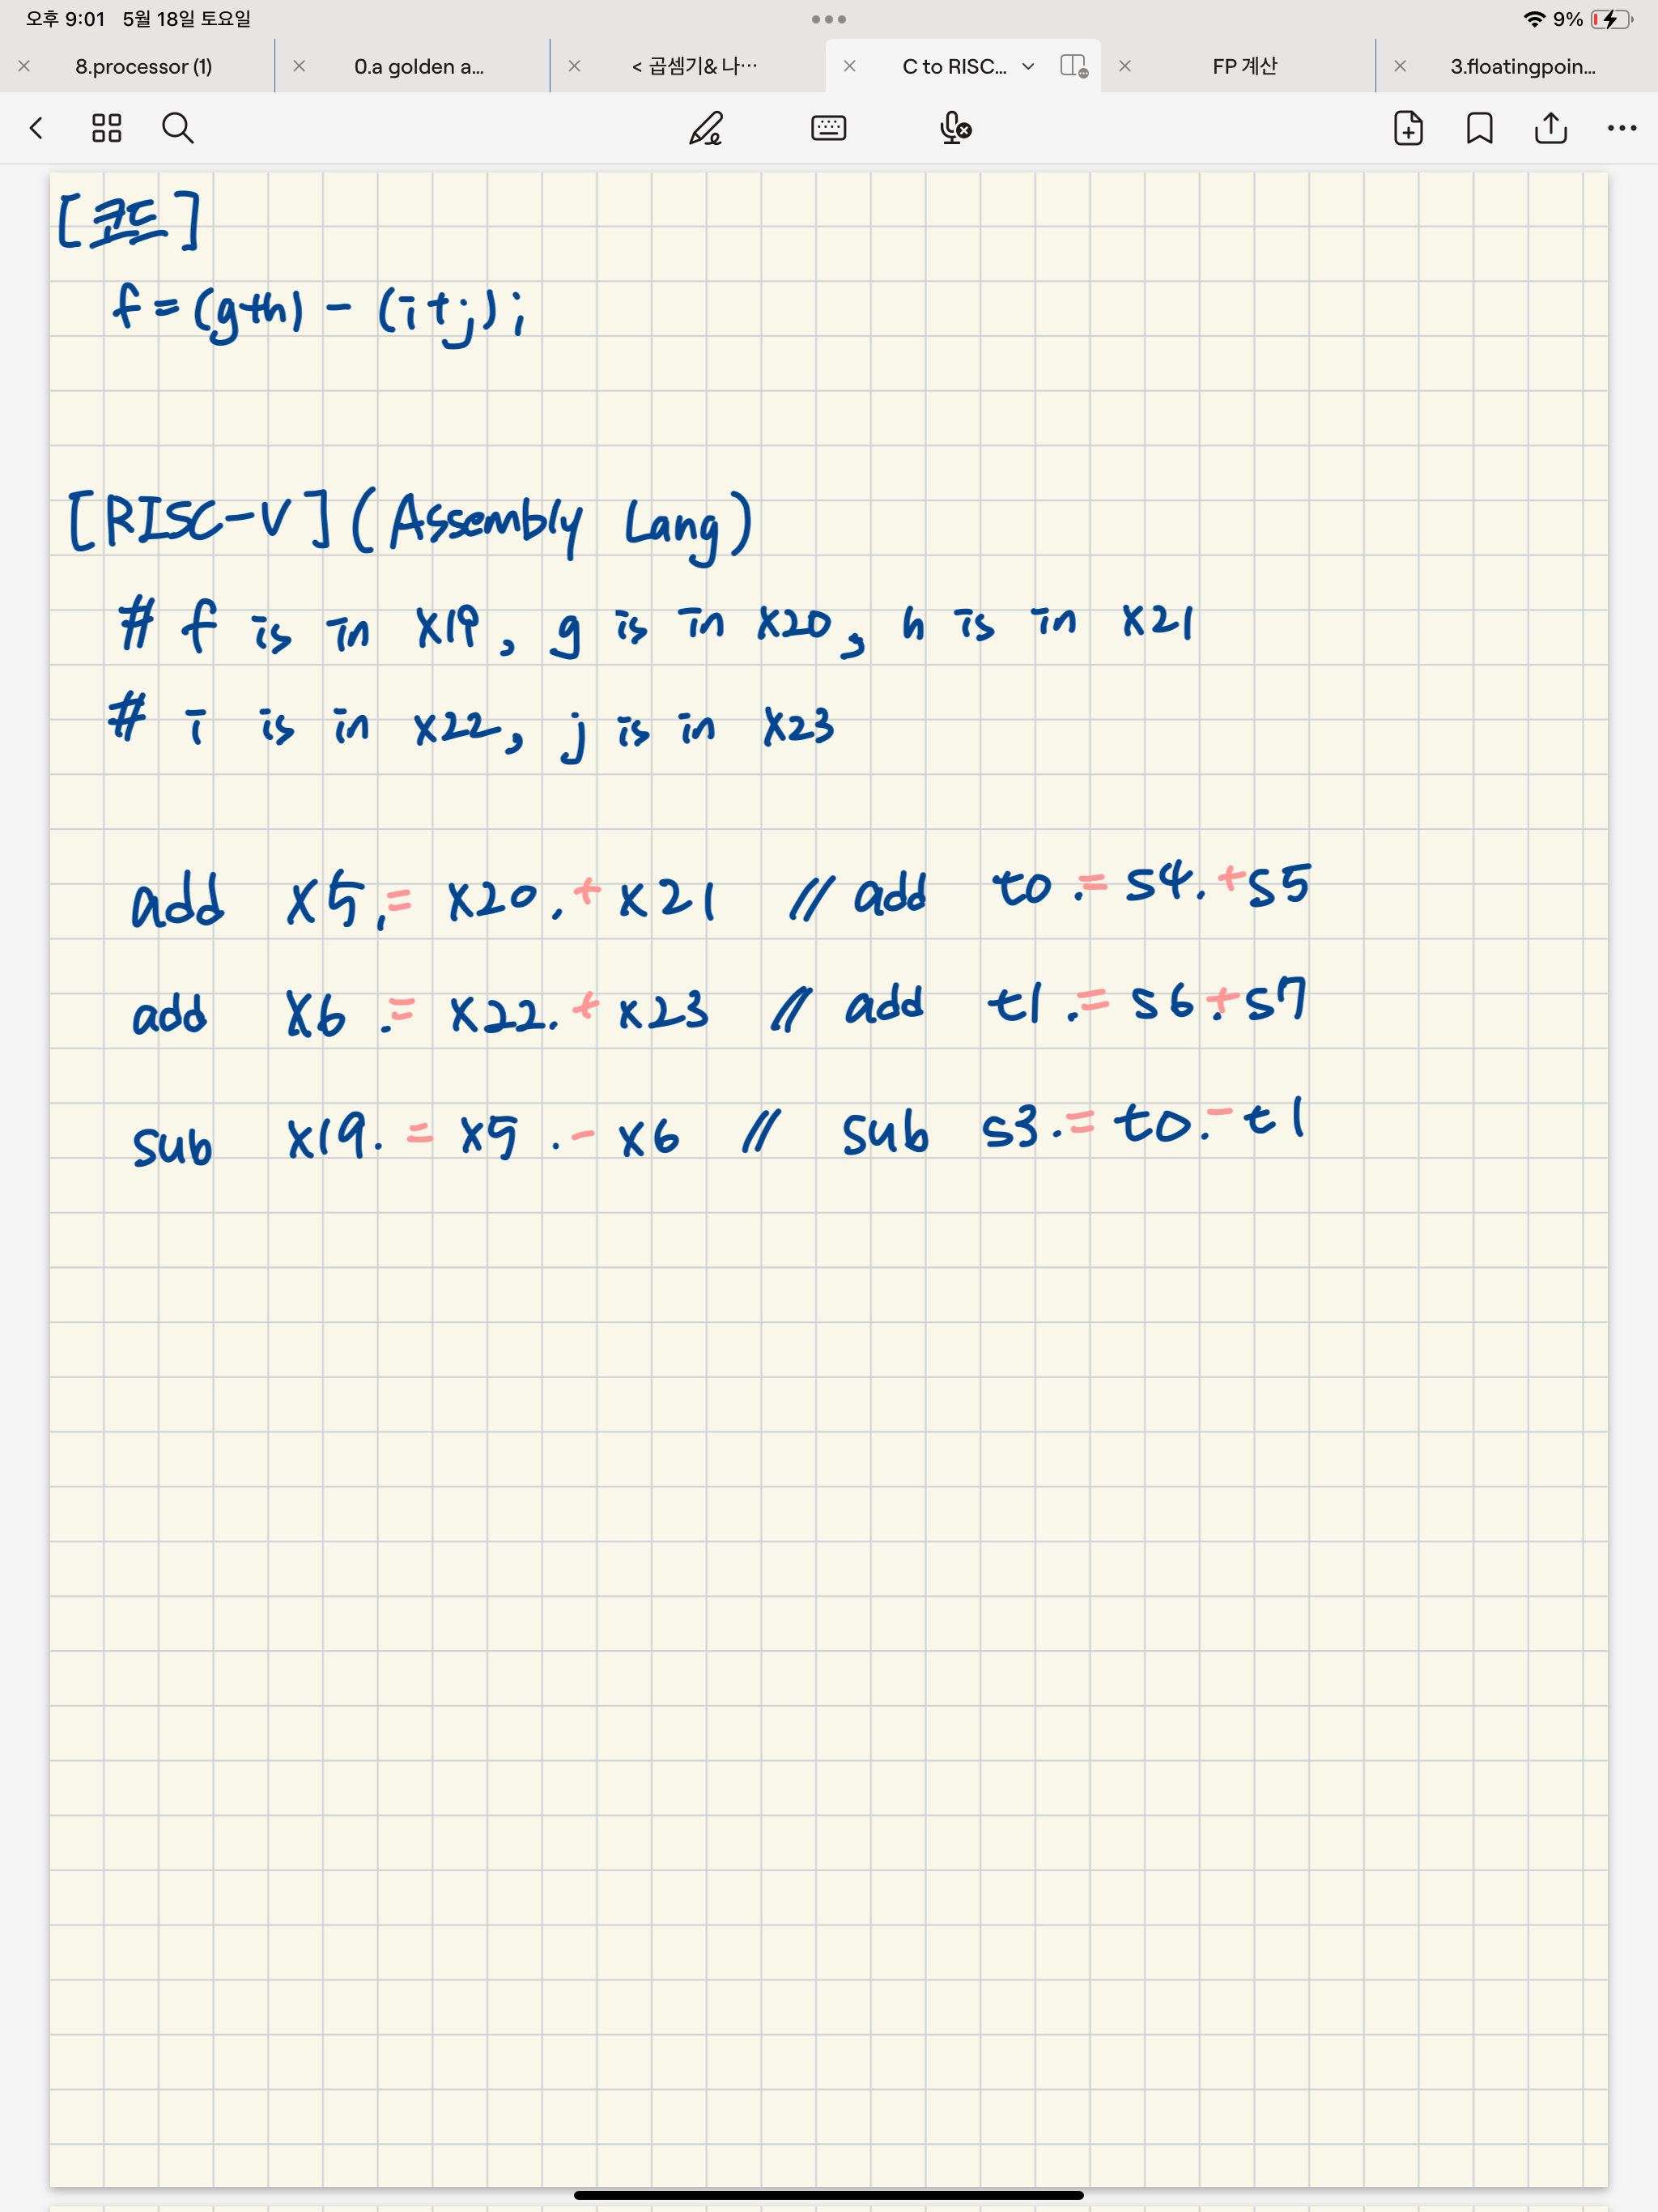 오후 9:01 5월 18일 토요일 9%
8.processor (1) 0.a golden a... < 곱셈기& 나… C to RISC... FP 계산 3.floatingpoin...
[코드]
f = (g+h) - (i+j);
[RISC-V] (Assembly Lang)
# f is in x19, g is in x20, h is in x21
# i is in x22, j is in x23
add x5, = x20, + x21 // add t0. = s4. + s5
add x6. = x22. + x23 // add t1. = s6. + s7
sub x19. = x5. - x6 // sub s3. = t0. - t1